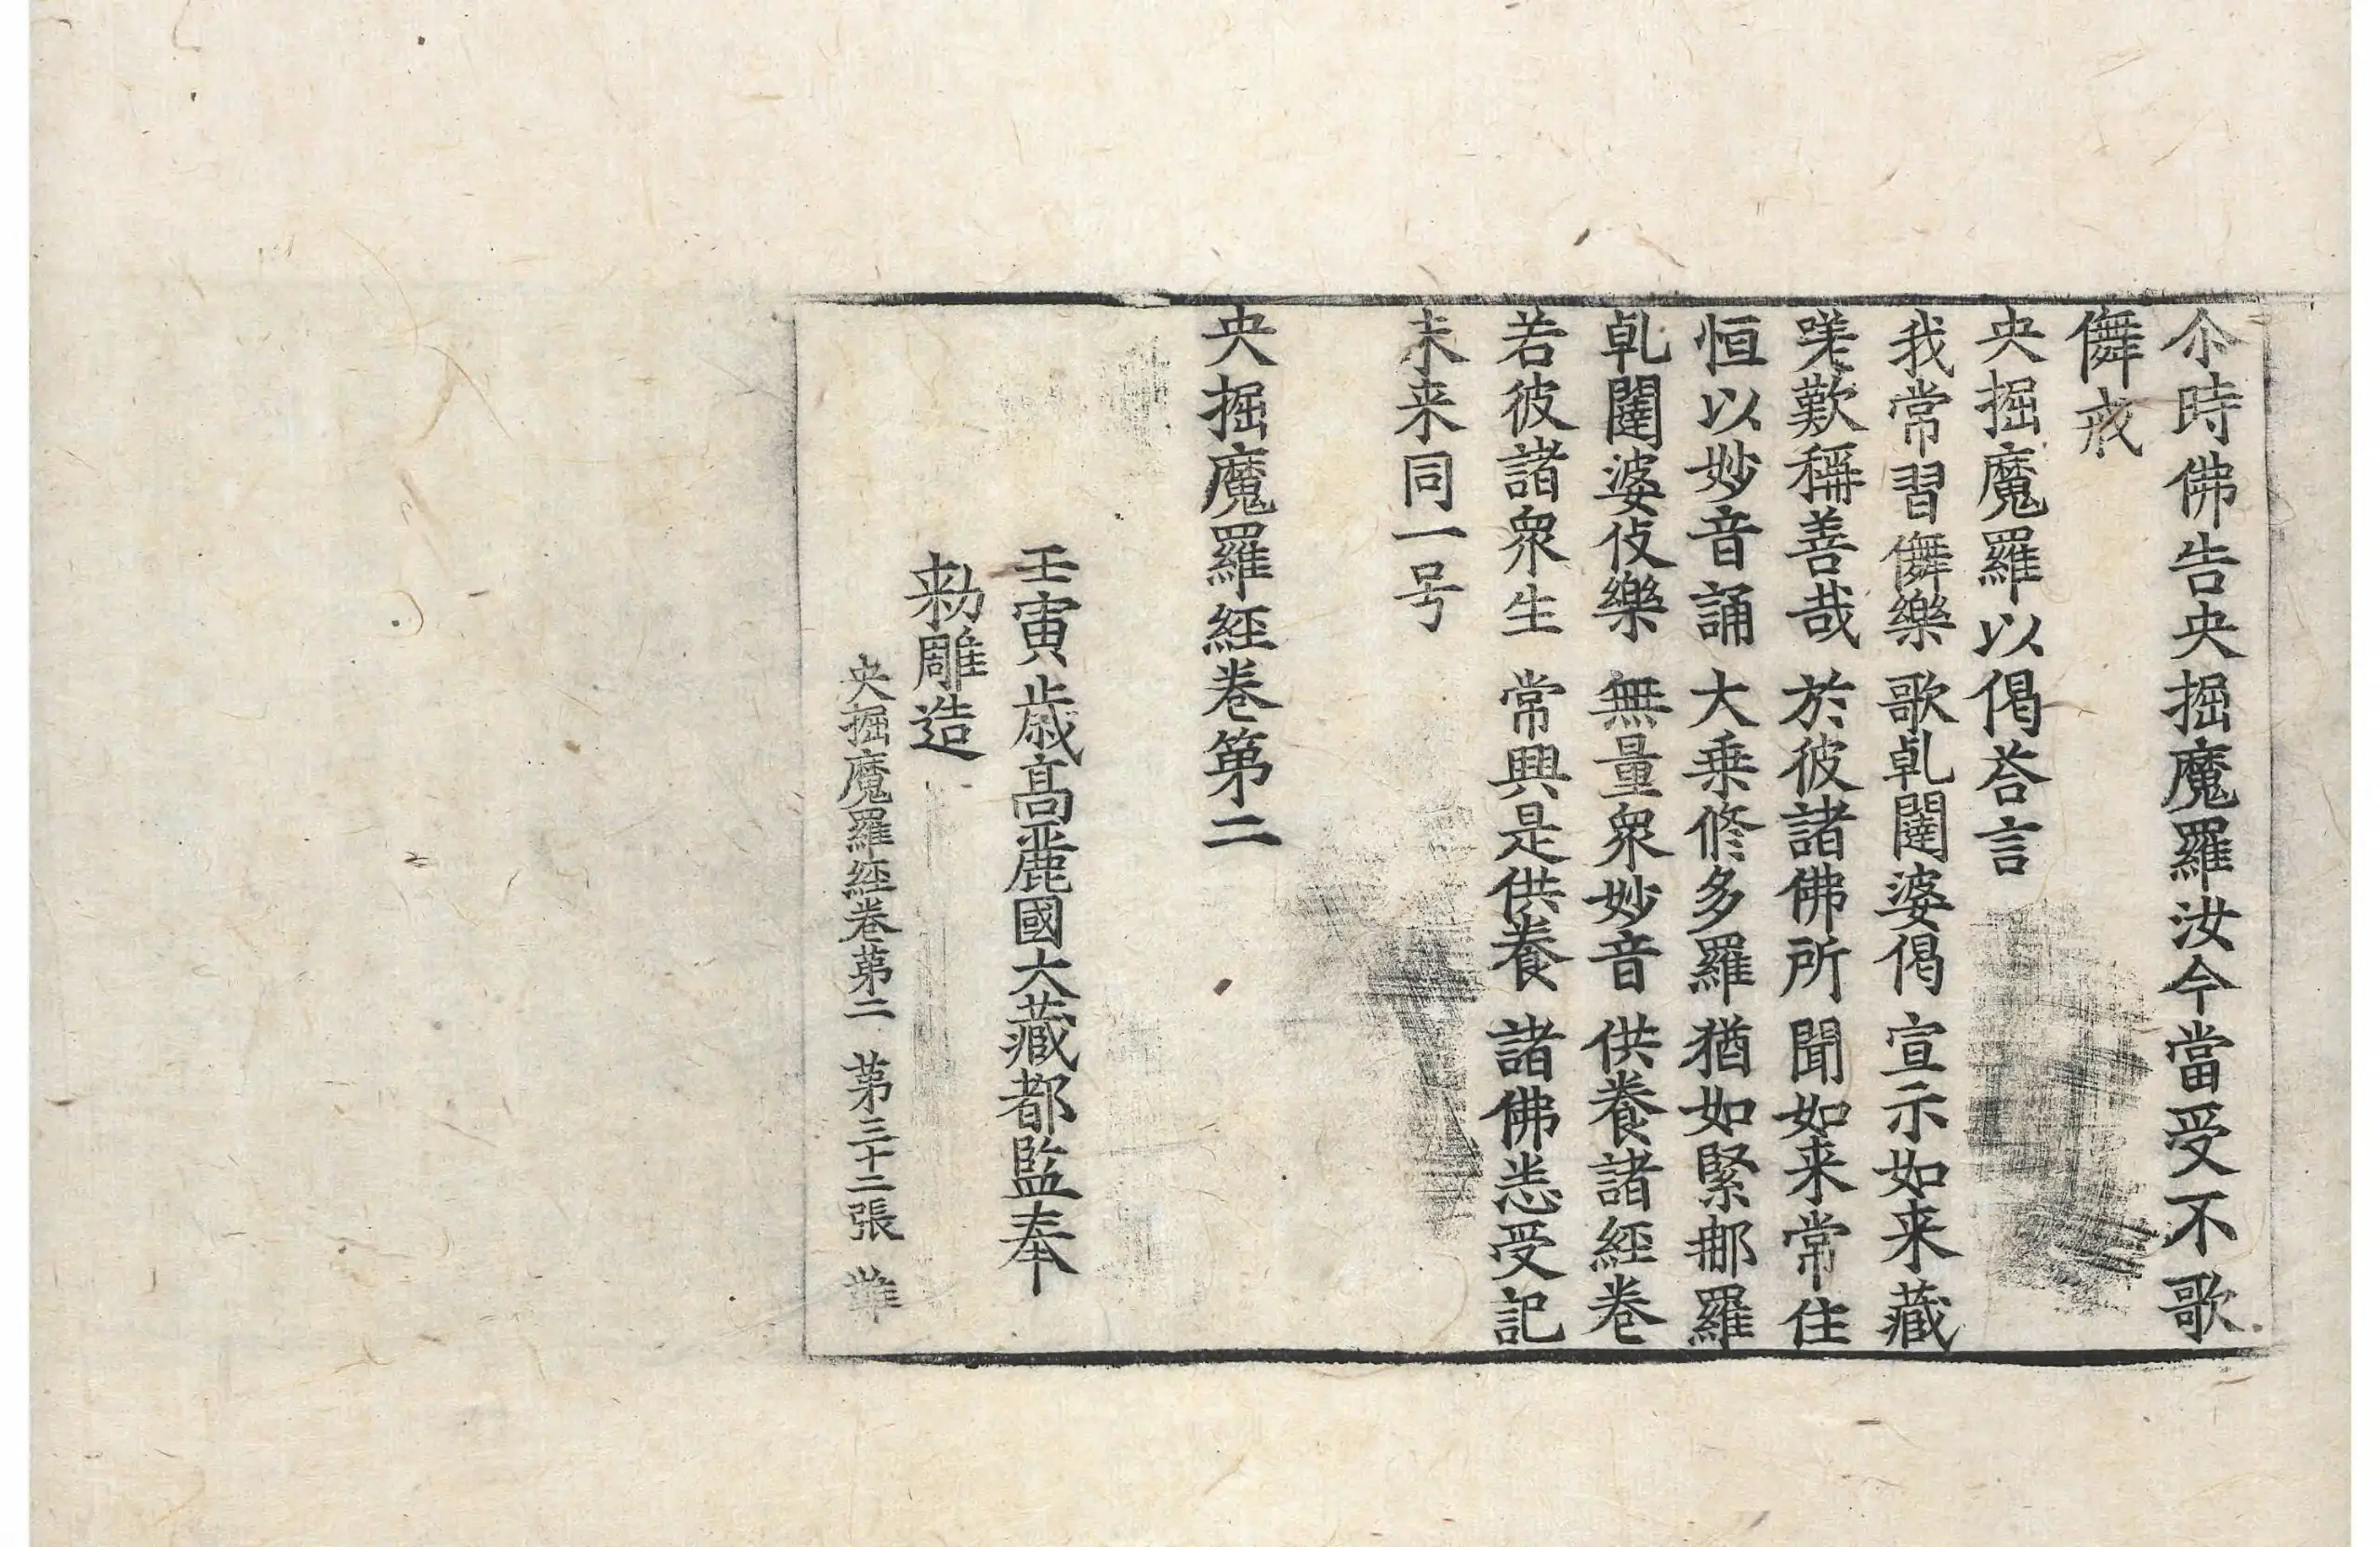 尒時佛告央掘魔羅汝今當受不歌
儛戒
央掘魔羅以偈荅言
我常習儛樂 歌乹闥婆偈 宣示如来藏
嗟歎稱善哉 於彼諸佛所 聞如来常住
恒以妙音誦 大乗修多羅 猶如緊那羅
乹闥婆伎樂 無量衆妙音 供養諸經卷
若彼諸衆生 常興是供養 諸佛悉受記
未来同一号
央掘魔羅経卷第二
壬寅歳高麗國大藏都監奉
勑雕造
央掘魔羅経卷第二 第三十二張